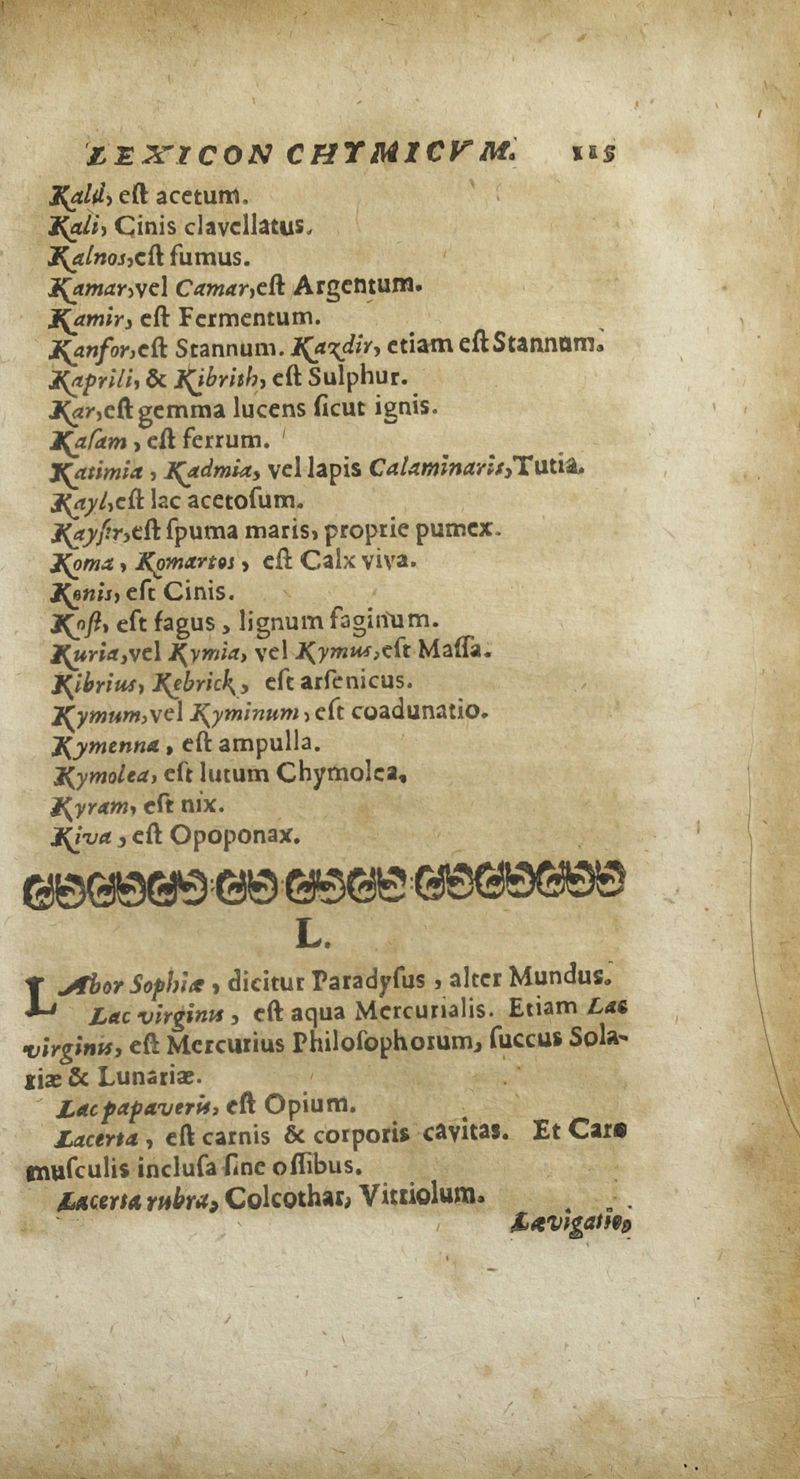 LEXICON CHYMICVM. 115
Kald, eſt acetum.
Kali, Cinis clavellatus.
Kalnos, eſt fumus.
Kamar, vel Camar, eſt Argentum.
Kamir, eſt Fermentum.
Kanſor, eſt Stannum. Kazdir, etiam eſt Stannum.
Kaprili, & Kibrith, eſt Sulphur.
Kar, eſt gemma lucens ſicut ignis.
Kaſam, eſt ferrum.
Katimia, Kadmia, vel lapis Calaminaris, Tutia.
Kayl, eſt lac acetoſum.
Kayſir, eſt ſpuma maris, proprie pumex.
Koma, Komartos, eſt Calx viva.
Konis, eſt Cinis.
Koſt, eſt fagus, lignum faginum.
Kuria, vel Kymia, vel Kymus, eſt Maſſa.
Kibrius, Kebrick, eſt arſenicus.
Kymum, vel Kyminum, eſt coadunatio.
Kymenna, eſt ampulla.
Kymolea, eſt lutum Chymolea,
Kyram, eſt nix.
Kiva, eſt Opoponax.
L.
LAbor Sophiæ, dicitur Paradyſus, alter Mundus.
Lac virginis, eſt aqua Mercurialis. Etiam Lac
virginis, eſt Mercurius Philoſophorum, ſuccus Sola-
riæ & Lunariæ.
Lac papaveris, eſt Opium.
Lacerta, eſt carnis & corporis cavitas. Et Caro
muſculis incluſa ſine oſſibus.
Lacerta rubra, Colcothar, Vitriolum.
Lævigatio,